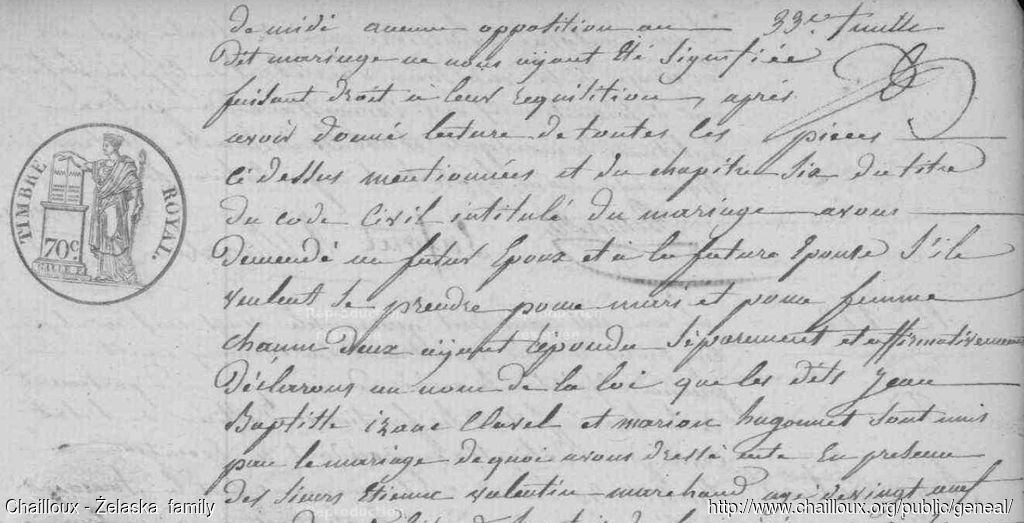 de midi aucune opposition au 33e feuille
Dit mariage ne nous ayant été signifiée
faisant droit à leur requisition, après
avoir donné lecture de toutes les pieces
ci dessus mentionnées et du chapitre six du titre
du code Civil intitulé du mariage avons
Demandé au futur Epoux et à la future Epouse S'ils
veulent se prendre pour mari et pour femme
chacun d'eux ayant répondu Séparement et affirmativement
Déclarons au nom de la loi que les dits Jean
Baptiste izaac Clavel et marion hugonnet sont unis
par le mariage de quoi avons dressé acte En presence
des Sieurs Etienne valentin marchand agé de vingt neuf
TIMBRE ROYAL.
70c
Reproduction
Chailloux - Żelaska family
http://www.chailloux.org/public/geneal/